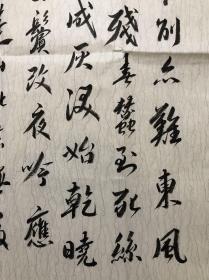 別亦難東風
殘春蠶到死絲
成灰淚始乾曉
鬢改夜吟應